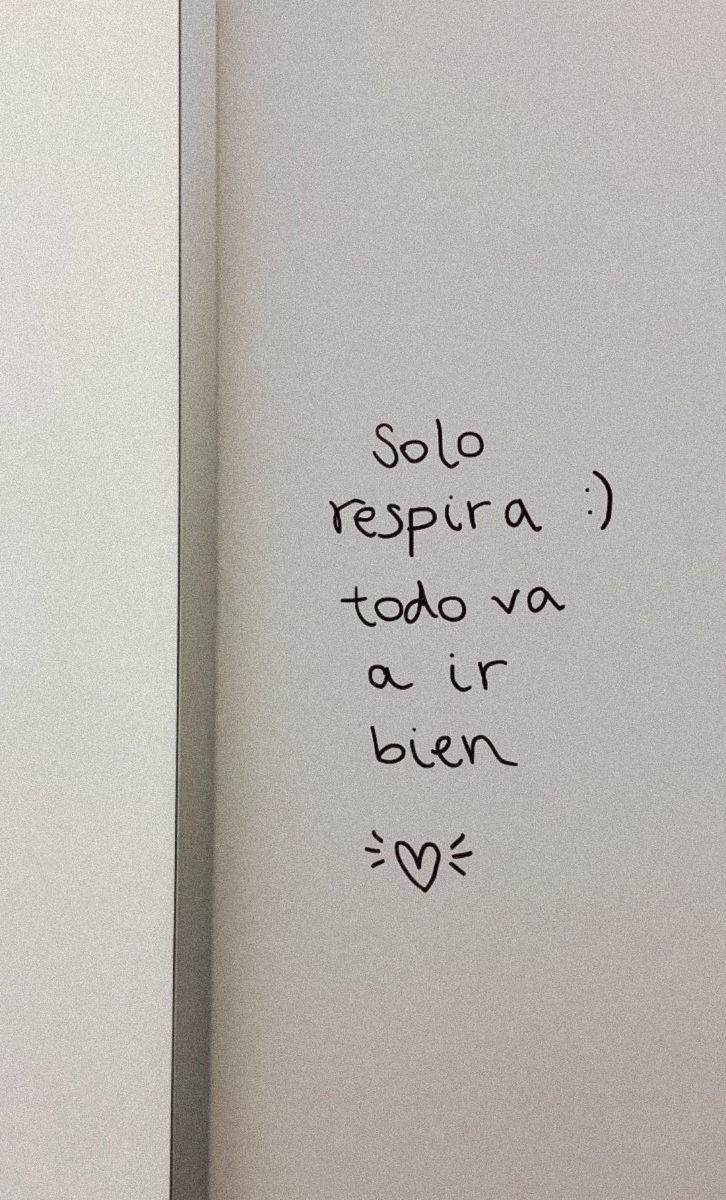 Solo
respira :)
todo va
a ir
bien